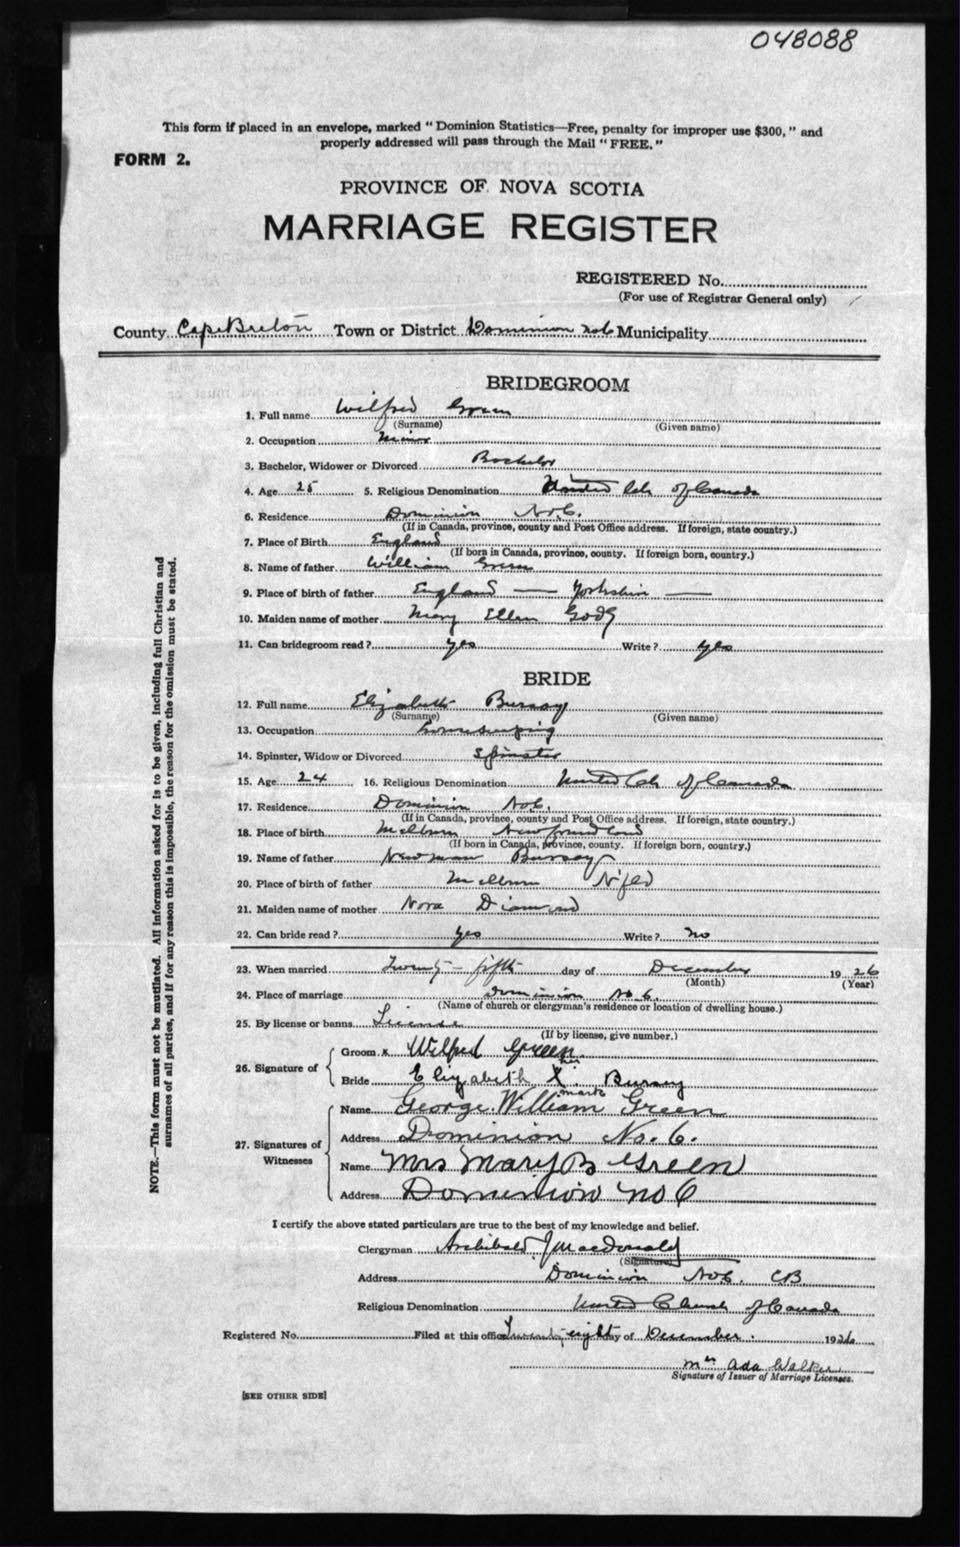 048088
This form if placed in an envelope, marked "Dominion Statistics—Free, penalty for improper use $300," and
properly addressed will pass through the Mail "FREE."
FORM 2.
PROVINCE OF NOVA SCOTIA
MARRIAGE REGISTER
REGISTERED No.
(For use of Registrar General only)
County Cape Breton Town or District Dominion No 6 Municipality
BRIDEGROOM
1. Full name Wilfred Green
(Surname) (Given name)
2. Occupation Miner
3. Bachelor, Widower or Divorced Bachelor
4. Age 25 5. Religious Denomination United Ch of Canada
6. Residence Dominion No 6.
(If in Canada, province, county and Post Office address. If foreign, state country.)
7. Place of Birth England
(If born in Canada, province, county. If foreign born, country.)
8. Name of father William Green
9. Place of birth of father England — Yorkshire —
10. Maiden name of mother Mary Ellen
11. Can bridegroom read? yes Write? yes
BRIDE
12. Full name Elizabeth Bursey
(Surname) (Given name)
13. Occupation
14. Spinster, Widow or Divorced Spinster
15. Age 24 16. Religious Denomination United Ch of Canada
17. Residence Dominion No 6.
(If in Canada, province, county and Post Office address. If foreign, state country.)
18. Place of birth Newfoundland
(If born in Canada, province, county. If foreign born, country.)
19. Name of father Newman Bursey
20. Place of birth of father Nfld
21. Maiden name of mother Nora Diamond
22. Can bride read? yes Write? no
23. When married Twenty-fifth day of December 1926
(Month) (Year)
24. Place of marriage Dominion No 6.
(Name of church or clergyman's residence or location of dwelling house.)
25. By license or banns License
(If by license, give number.)
26. Signature of
Groom x Wilfred Green
Bride Elizabeth her X mark Bursey
27. Signatures of Witnesses
Name George William Green
Address Dominion No. 6.
Name Mrs Mary B Green
Address Dominion no 6
I certify the above stated particulars are true to the best of my knowledge and belief.
Clergyman Archibald J Macdonald
(Signature)
Address Dominion No 6. CB
Religious Denomination United Church of Canada
Registered No. Filed at this office Twenty-eight day of December. 1926
Mrs Ada Walker
Signature of Issuer of Marriage Licenses.
[SEE OTHER SIDE]
NOTE.—This form must not be mutilated. All information asked for is to be given, including full Christian and
surnames of all parties, and if for any reason this is impossible, the reason for the omission must be stated.